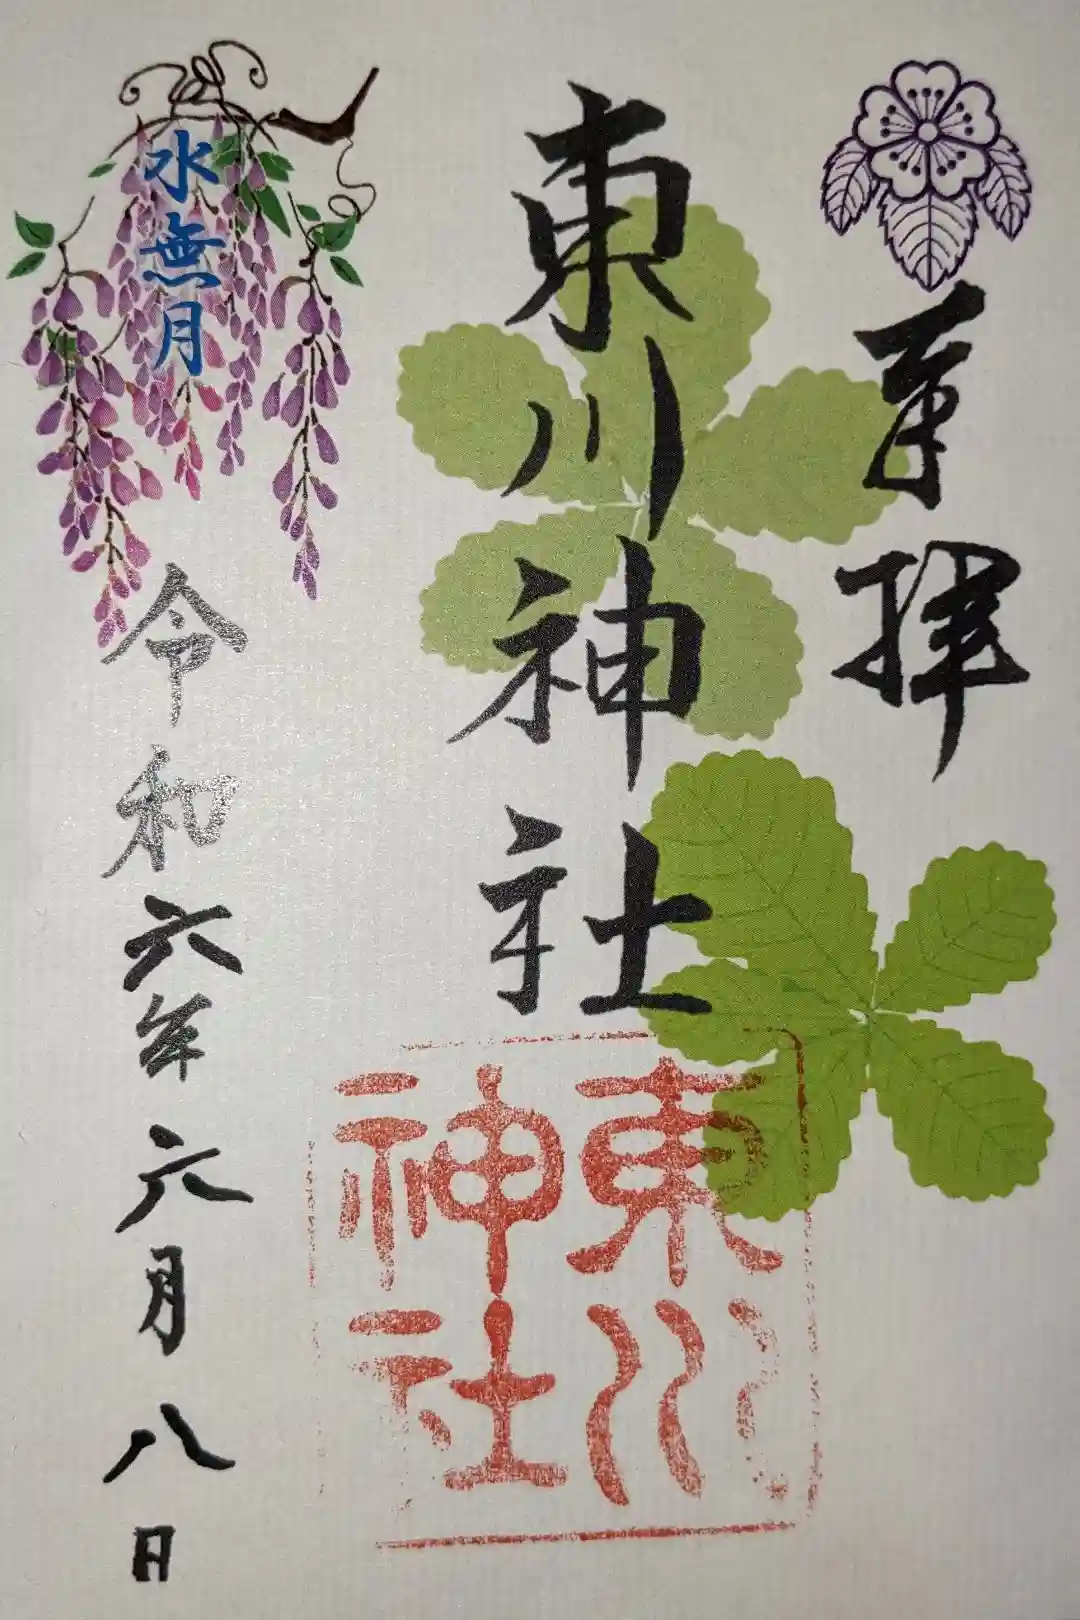 奉拝
東川神社
東川神社
水無月
令和六年六月八日